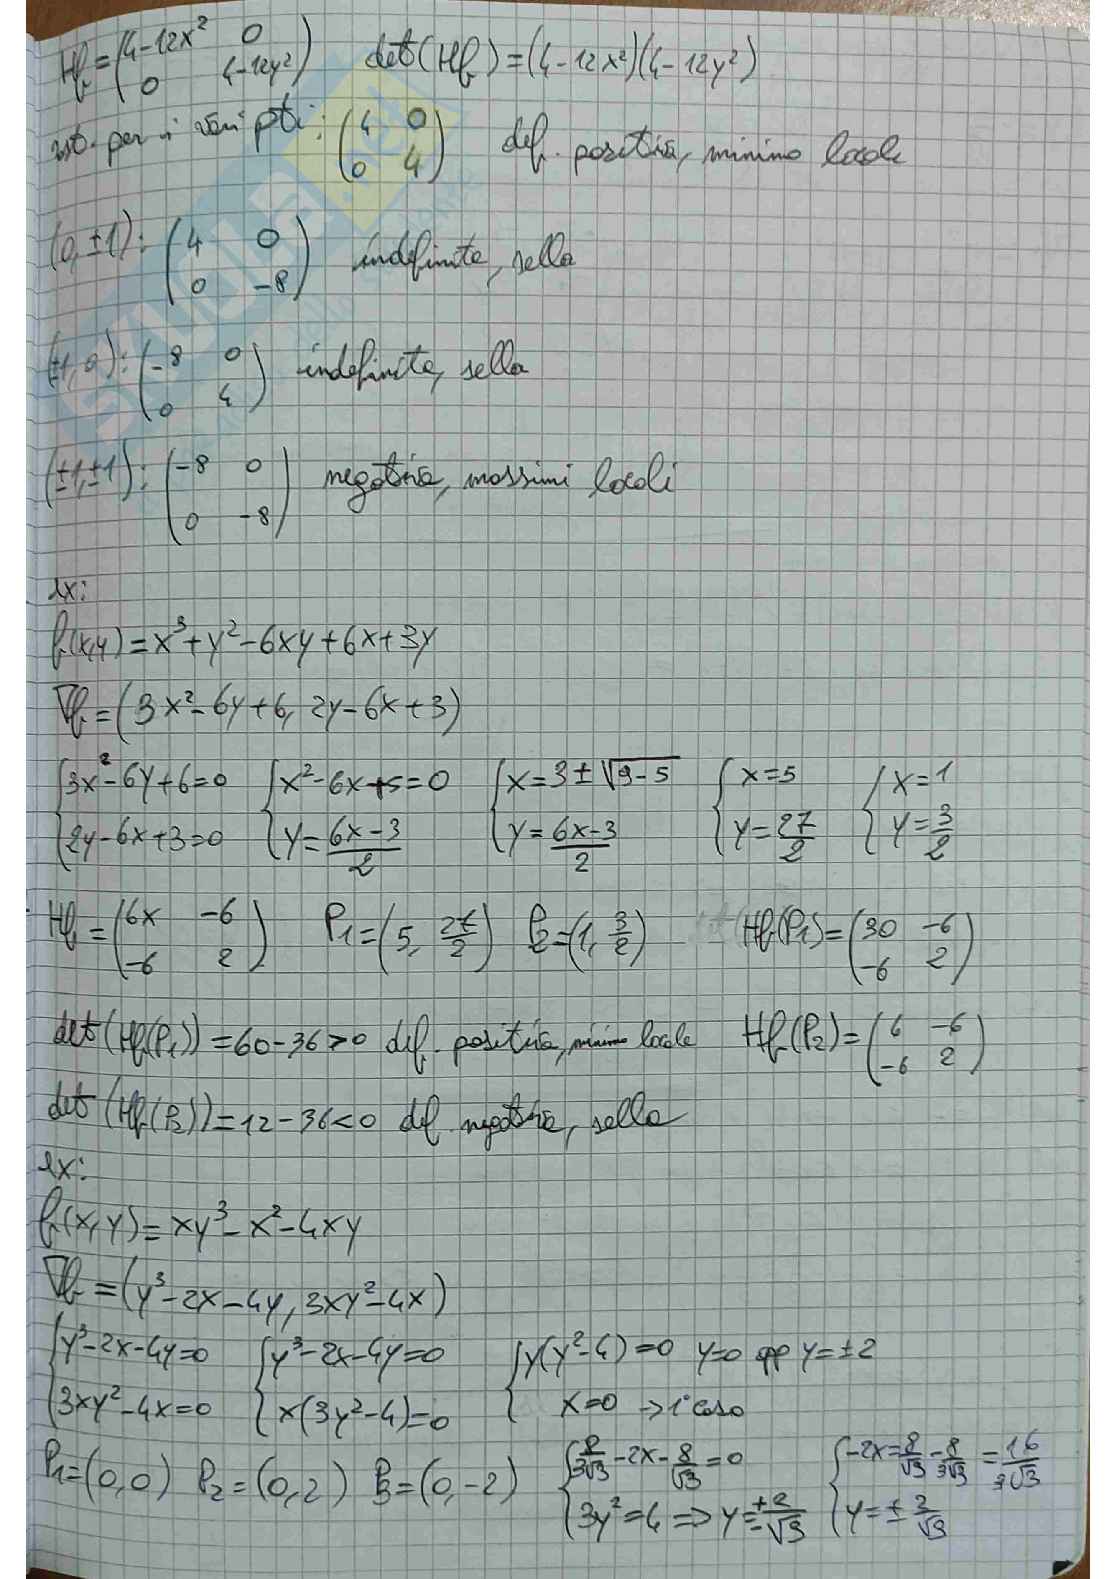 Hf = (4-12x² 0 / 0 4-12y²) det(Hf) = (4-12x²)(4-12y²)
st. per i vari pti: (4 0 / 0 4) def. positiva, minimo locale
(0,±1): (4 0 / 0 -8) indefinita, sella
(±1,0): (-8 0 / 0 4) indefinita, sella
(±1,±1): (-8 0 / 0 -8) negativa, massimi locali
ex:
f(x,y) = x³+y²-6xy+6x+3y
∇f = (3x²-6y+6, 2y-6x+3)
{3x²-6y+6=0 {x²-6x+5=0 {x=3±√9-5 {x=5 {x=1
{2y-6x+3=0 {y=6x-3/2 {y=6x-3/2 {y=27/2 {y=3/2
Hf = (6x -6 / -6 2) P1=(5, 27/2) P2=(1, 3/2) Hf(P1)=(30 -6 / -6 2)
det(Hf(P1))=60-36>0 def. positiva, minimo locale Hf(P2)=(6 -6 / -6 2)
det(Hf(P2))=12-36<0 def. negativa, sella
ex:
f(x,y)=xy³-x²-4xy
∇f=(y³-2x-4y, 3xy²-4x)
{y³-2x-4y=0 {y³-2x-4y=0 {y(y²-4)=0 y=0 opp y=±2
{3xy²-4x=0 {x(3y²-4)=0 { x=0 → 1° caso
P1=(0,0) P2=(0,2) P3=(0,-2) {8/3√3-2x-8/√3=0 {-2x=8/√3-8/3√3=16/3√3
{3y²=4 ⇒ y=±2/√3 {y=±2/√3